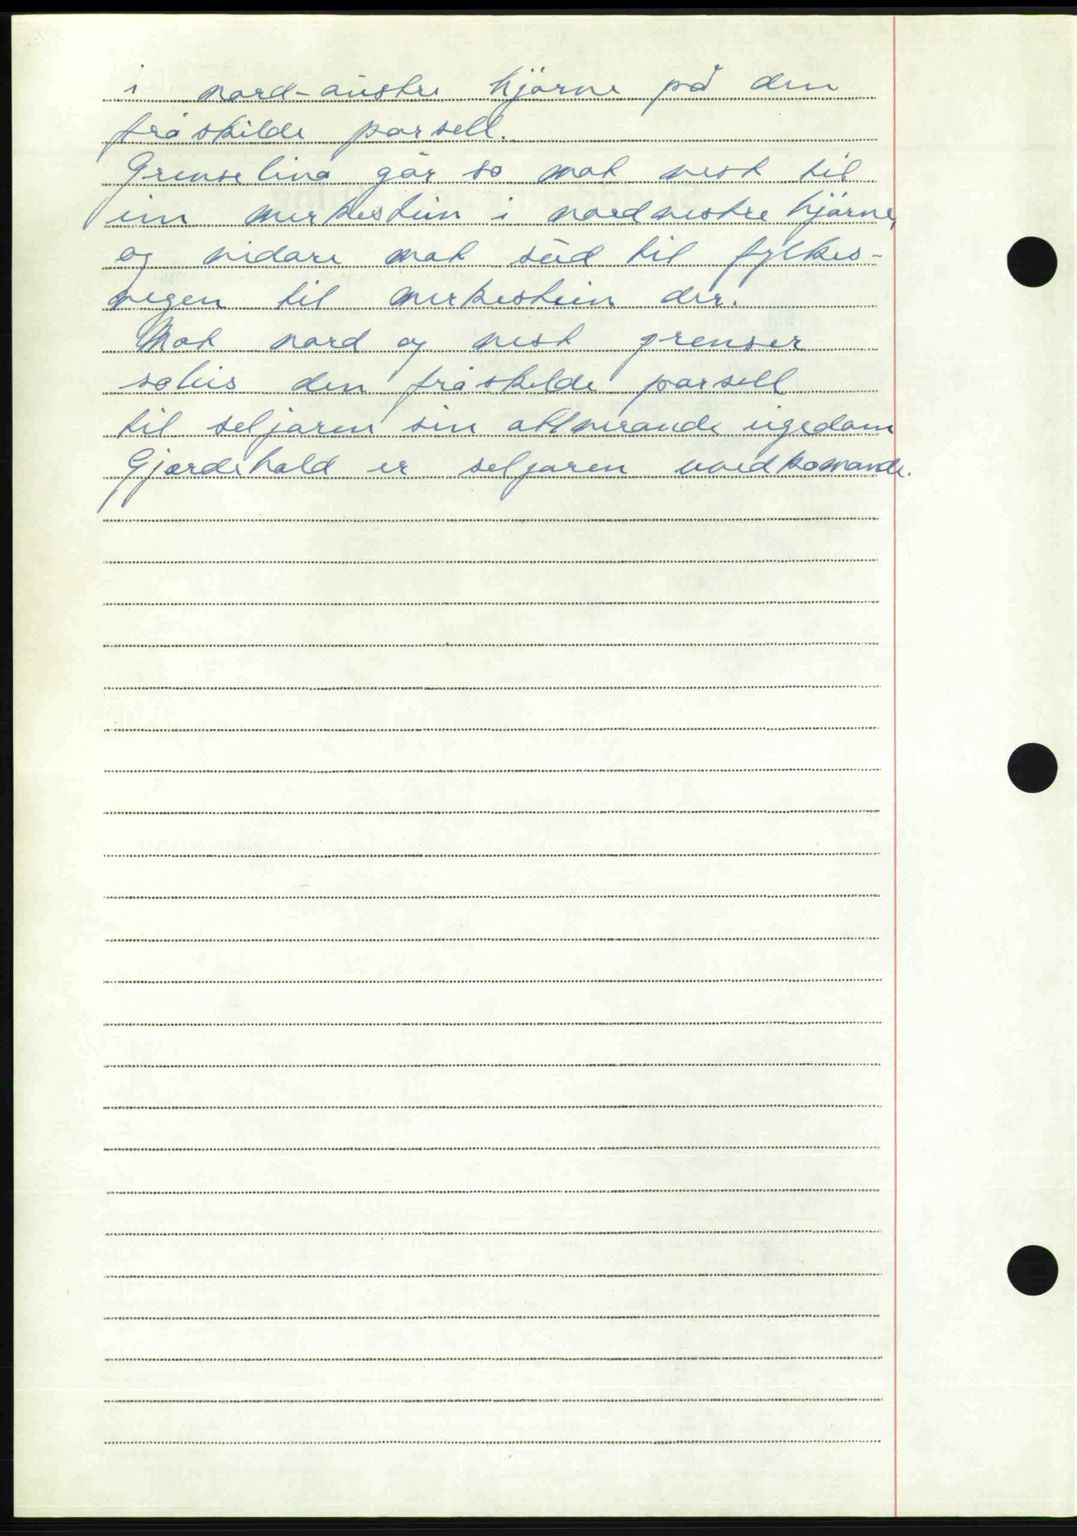 i nord-austre hjørne på den
fråskilde parsell.
Grenselina går so mot vest til
ein merkestein i nordvestre hjørne,
og vidare mot sud til fylkes-
vegen til merkestein der.
Mot nord og vest grenser
soleis den fråskilde parsell
til seljaren sin attverande eigedom
Gjerdehald er seljaren uvedkomande.